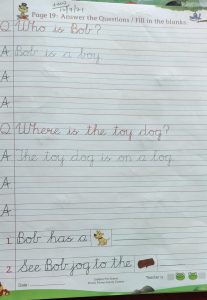 Page 19: Answer the Questions / Fill in the blanks.
Q Who is Bob?
A Bob is a boy
A
A
Q Where is the toy dog?
A The toy dog is on a log
A
A
1. Bob has a
2. See Bob jog to the
Date:
Teacher's